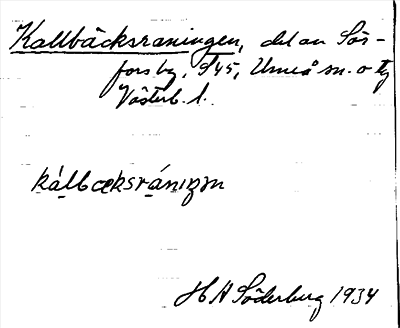 Kallbäcksraningen, del av Sör-
fors by, S45, Umeå sn. o tg
Västerb. l.
kálbæksránıŋən
H A Söderberg 1934